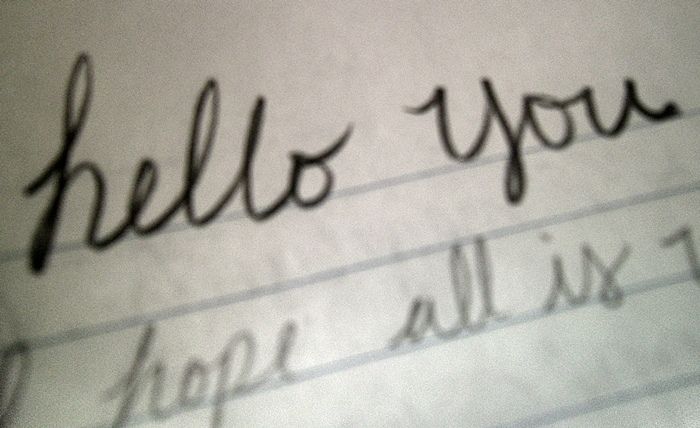 hello you
hope all is